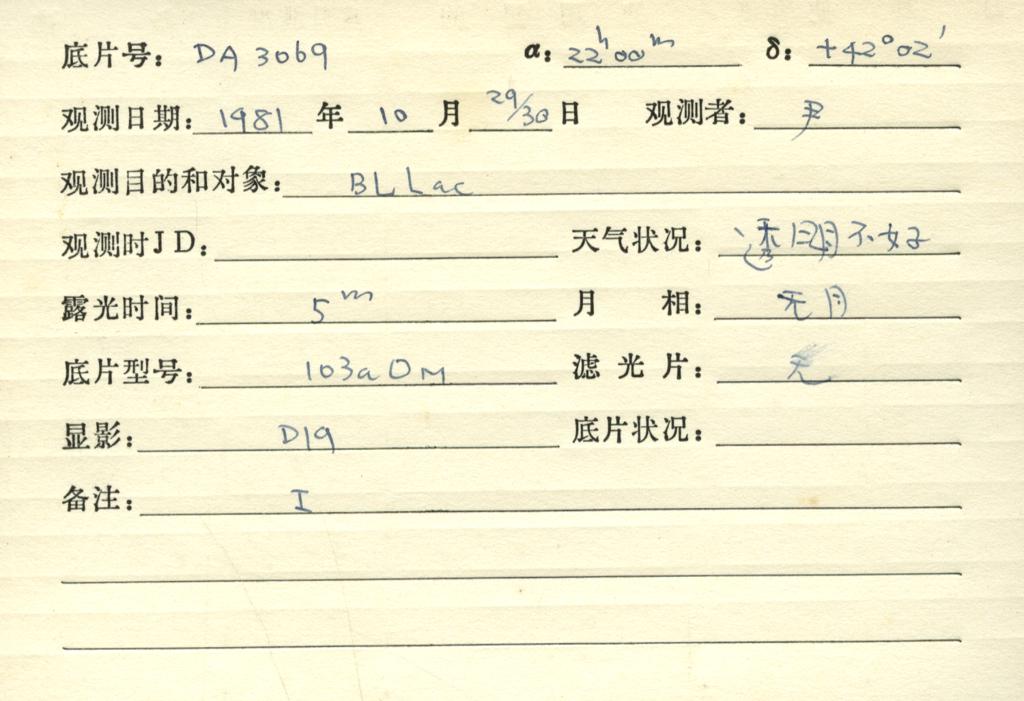 底片号: DA 3069 α: 22ʰ00ᵐ δ: +42°02′
观测日期: 1981 年 10 月 29/30 日 观测者: 尹
观测目的和对象: BL Lac
观测时JD: 天气状况: 透明不好
露光时间: 5ᵐ 月 相: 无月
底片型号: 103aOM 滤 光 片: 无
显影: D19 底片状况:
备注: I